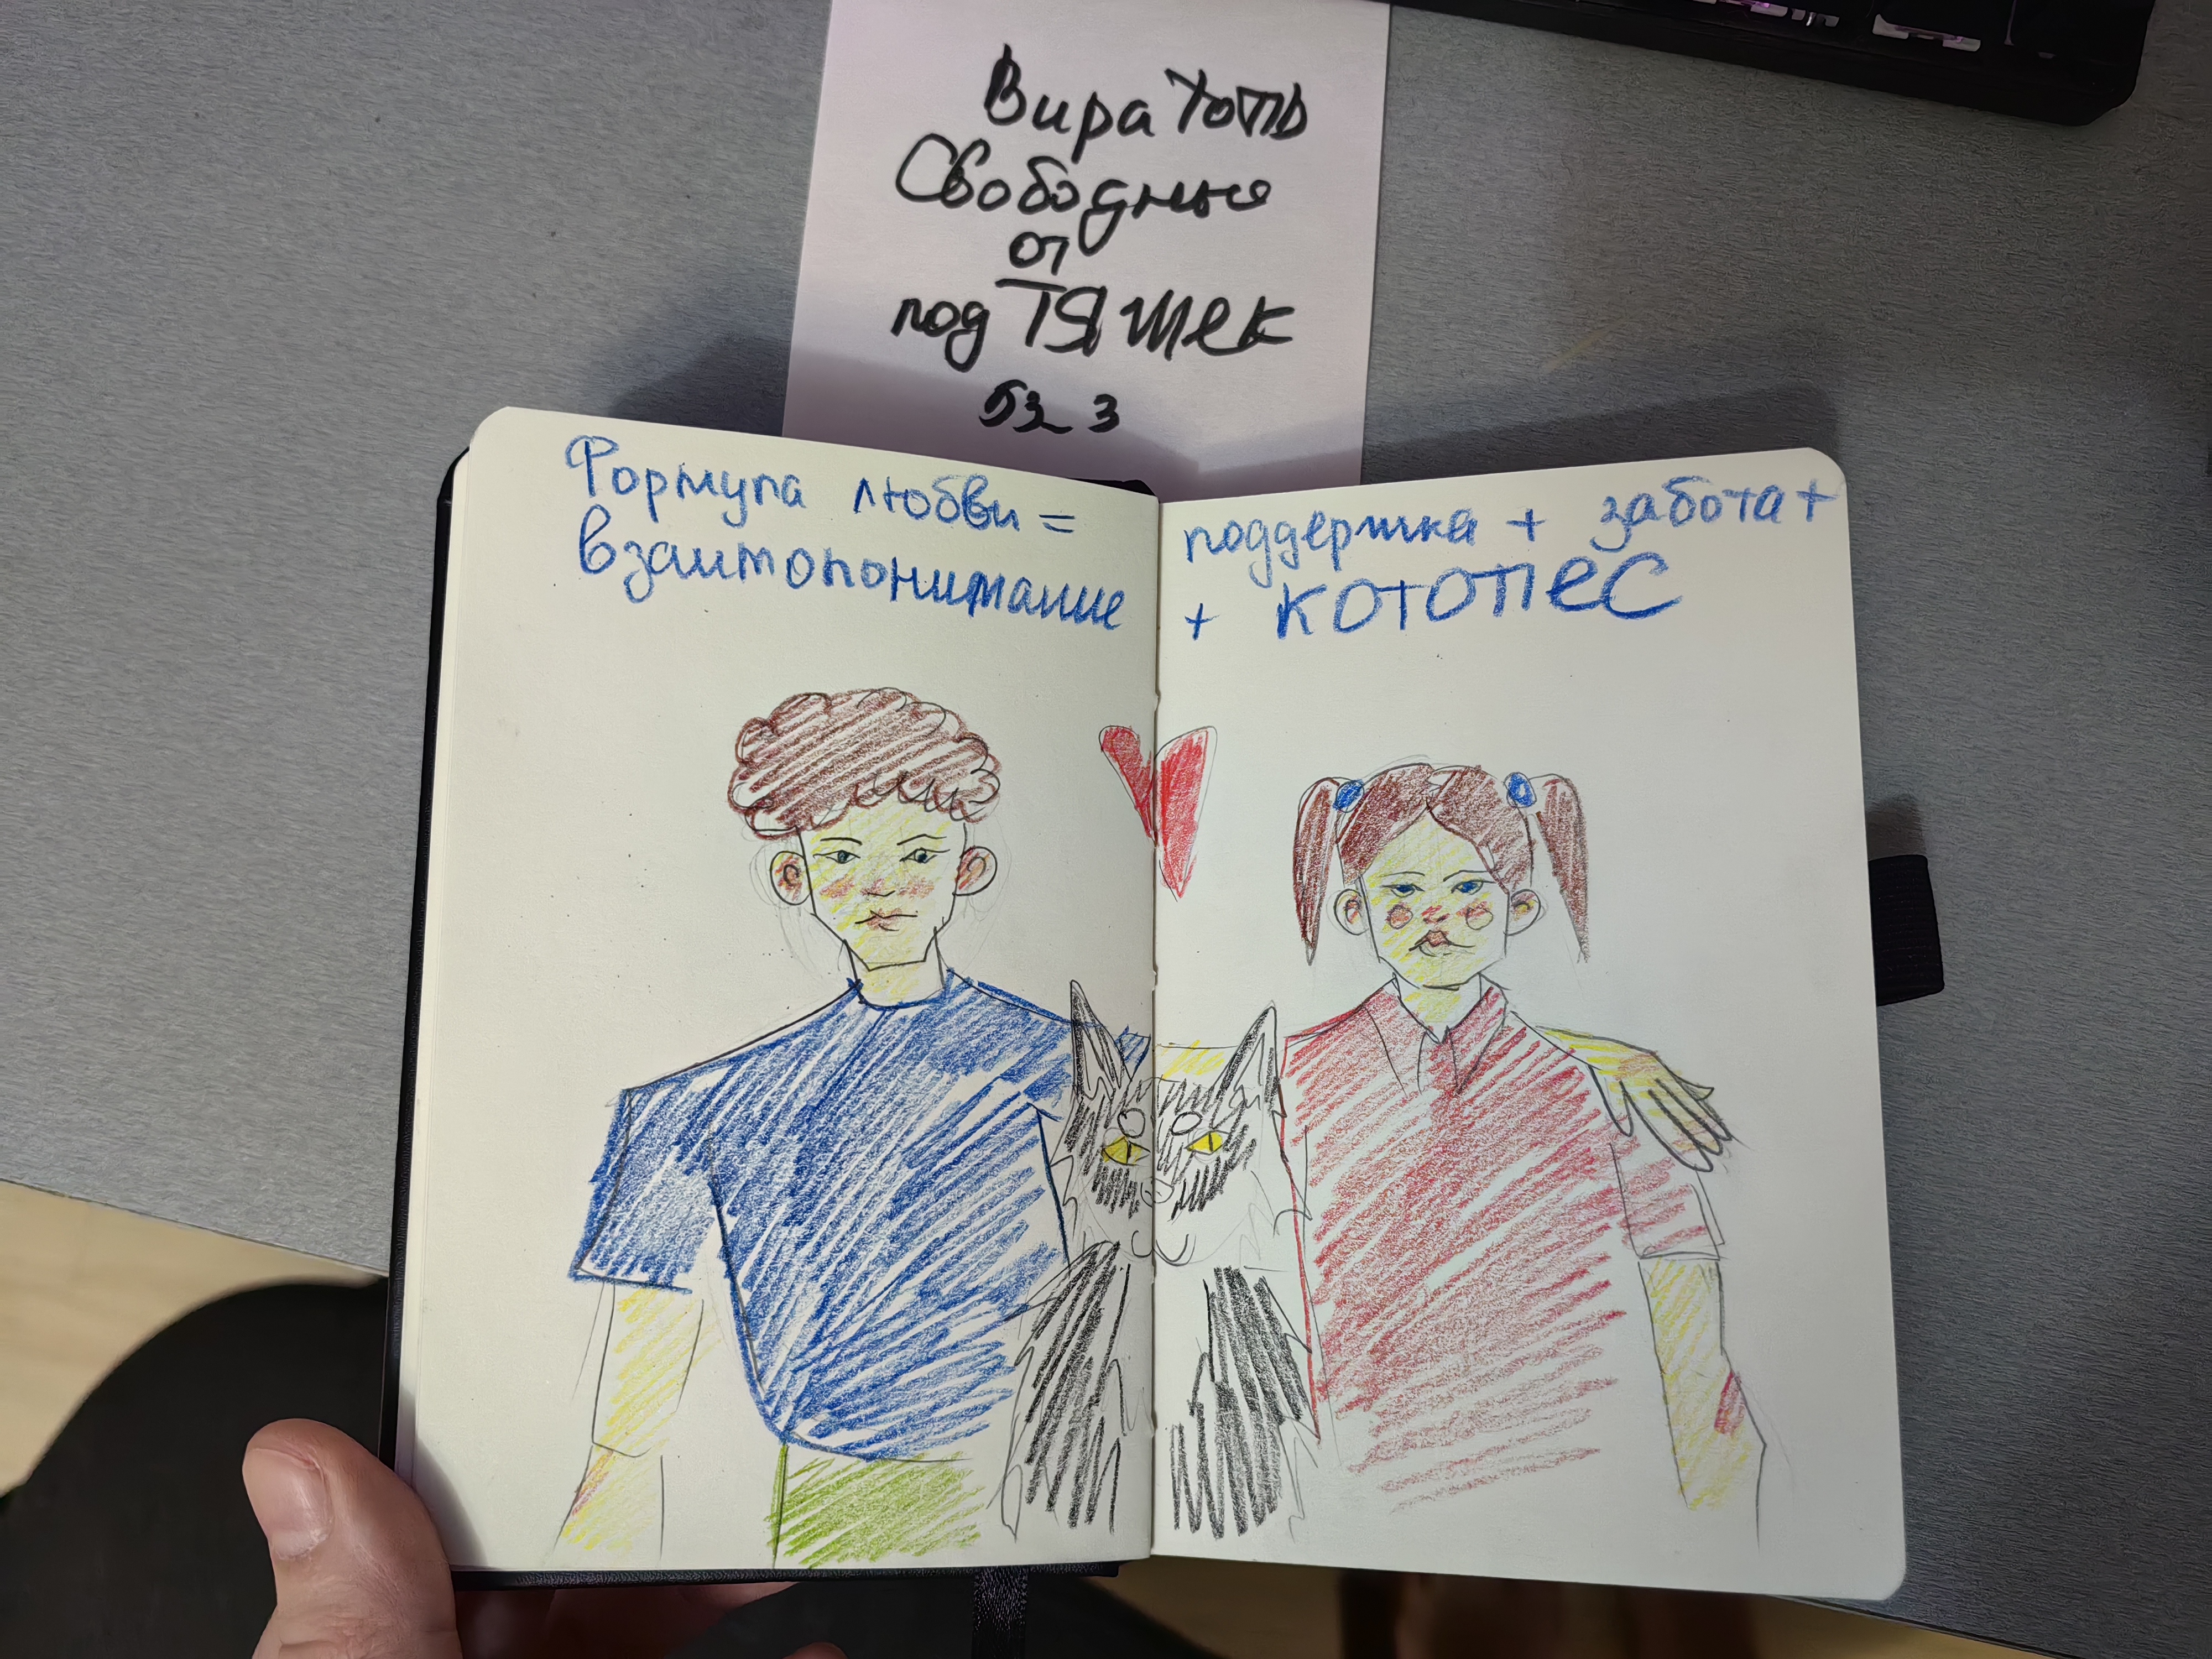 Вира Хоть
Свободные
от
подтяжек
523
Формула любви =
взаимопонимание
поддержка + забота +
+ КОТОПЕС